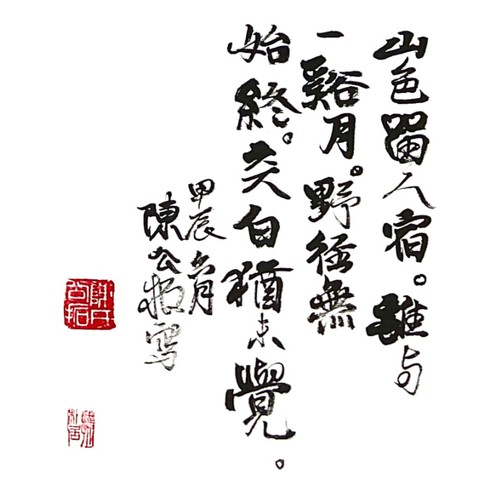 山色畱人宿。誰与
一谿月。野徑無
始終。天白猶未覺。
甲辰月
陳公寫